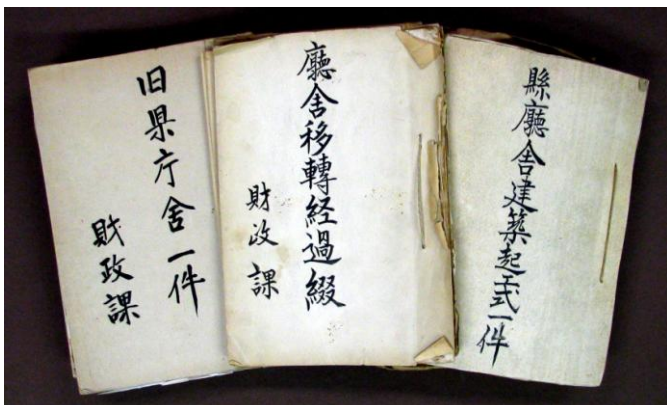 縣廳舎建築起工式一件
廳舎移轉経過綴
財政課
旧県庁舎一件
財政課